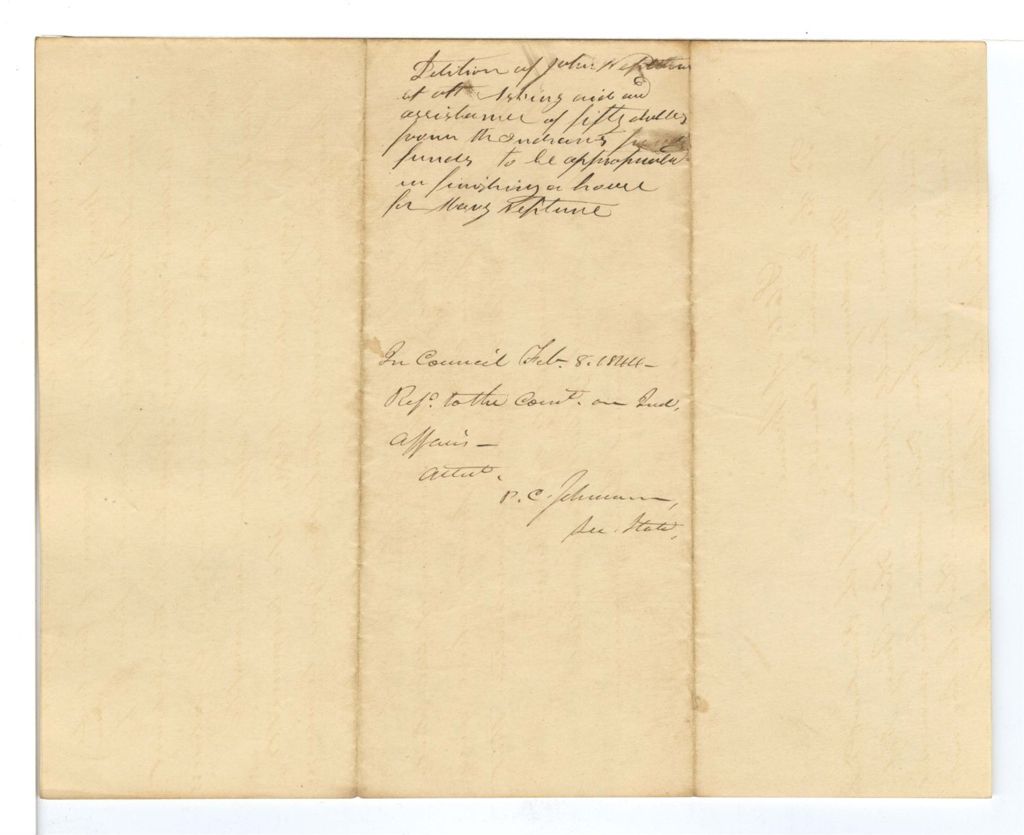 Petition of John Neptune
et als Asking aid and
assistance of fifty dollars
from the Indians
funds to be appropriated
in finishing a house
for Mary Neptune
In Council Feb. 8. 1844-
Refd. to the Comt. on Ind.
Affairs-
Attest.
P. C. Johnson,
Sec. State.